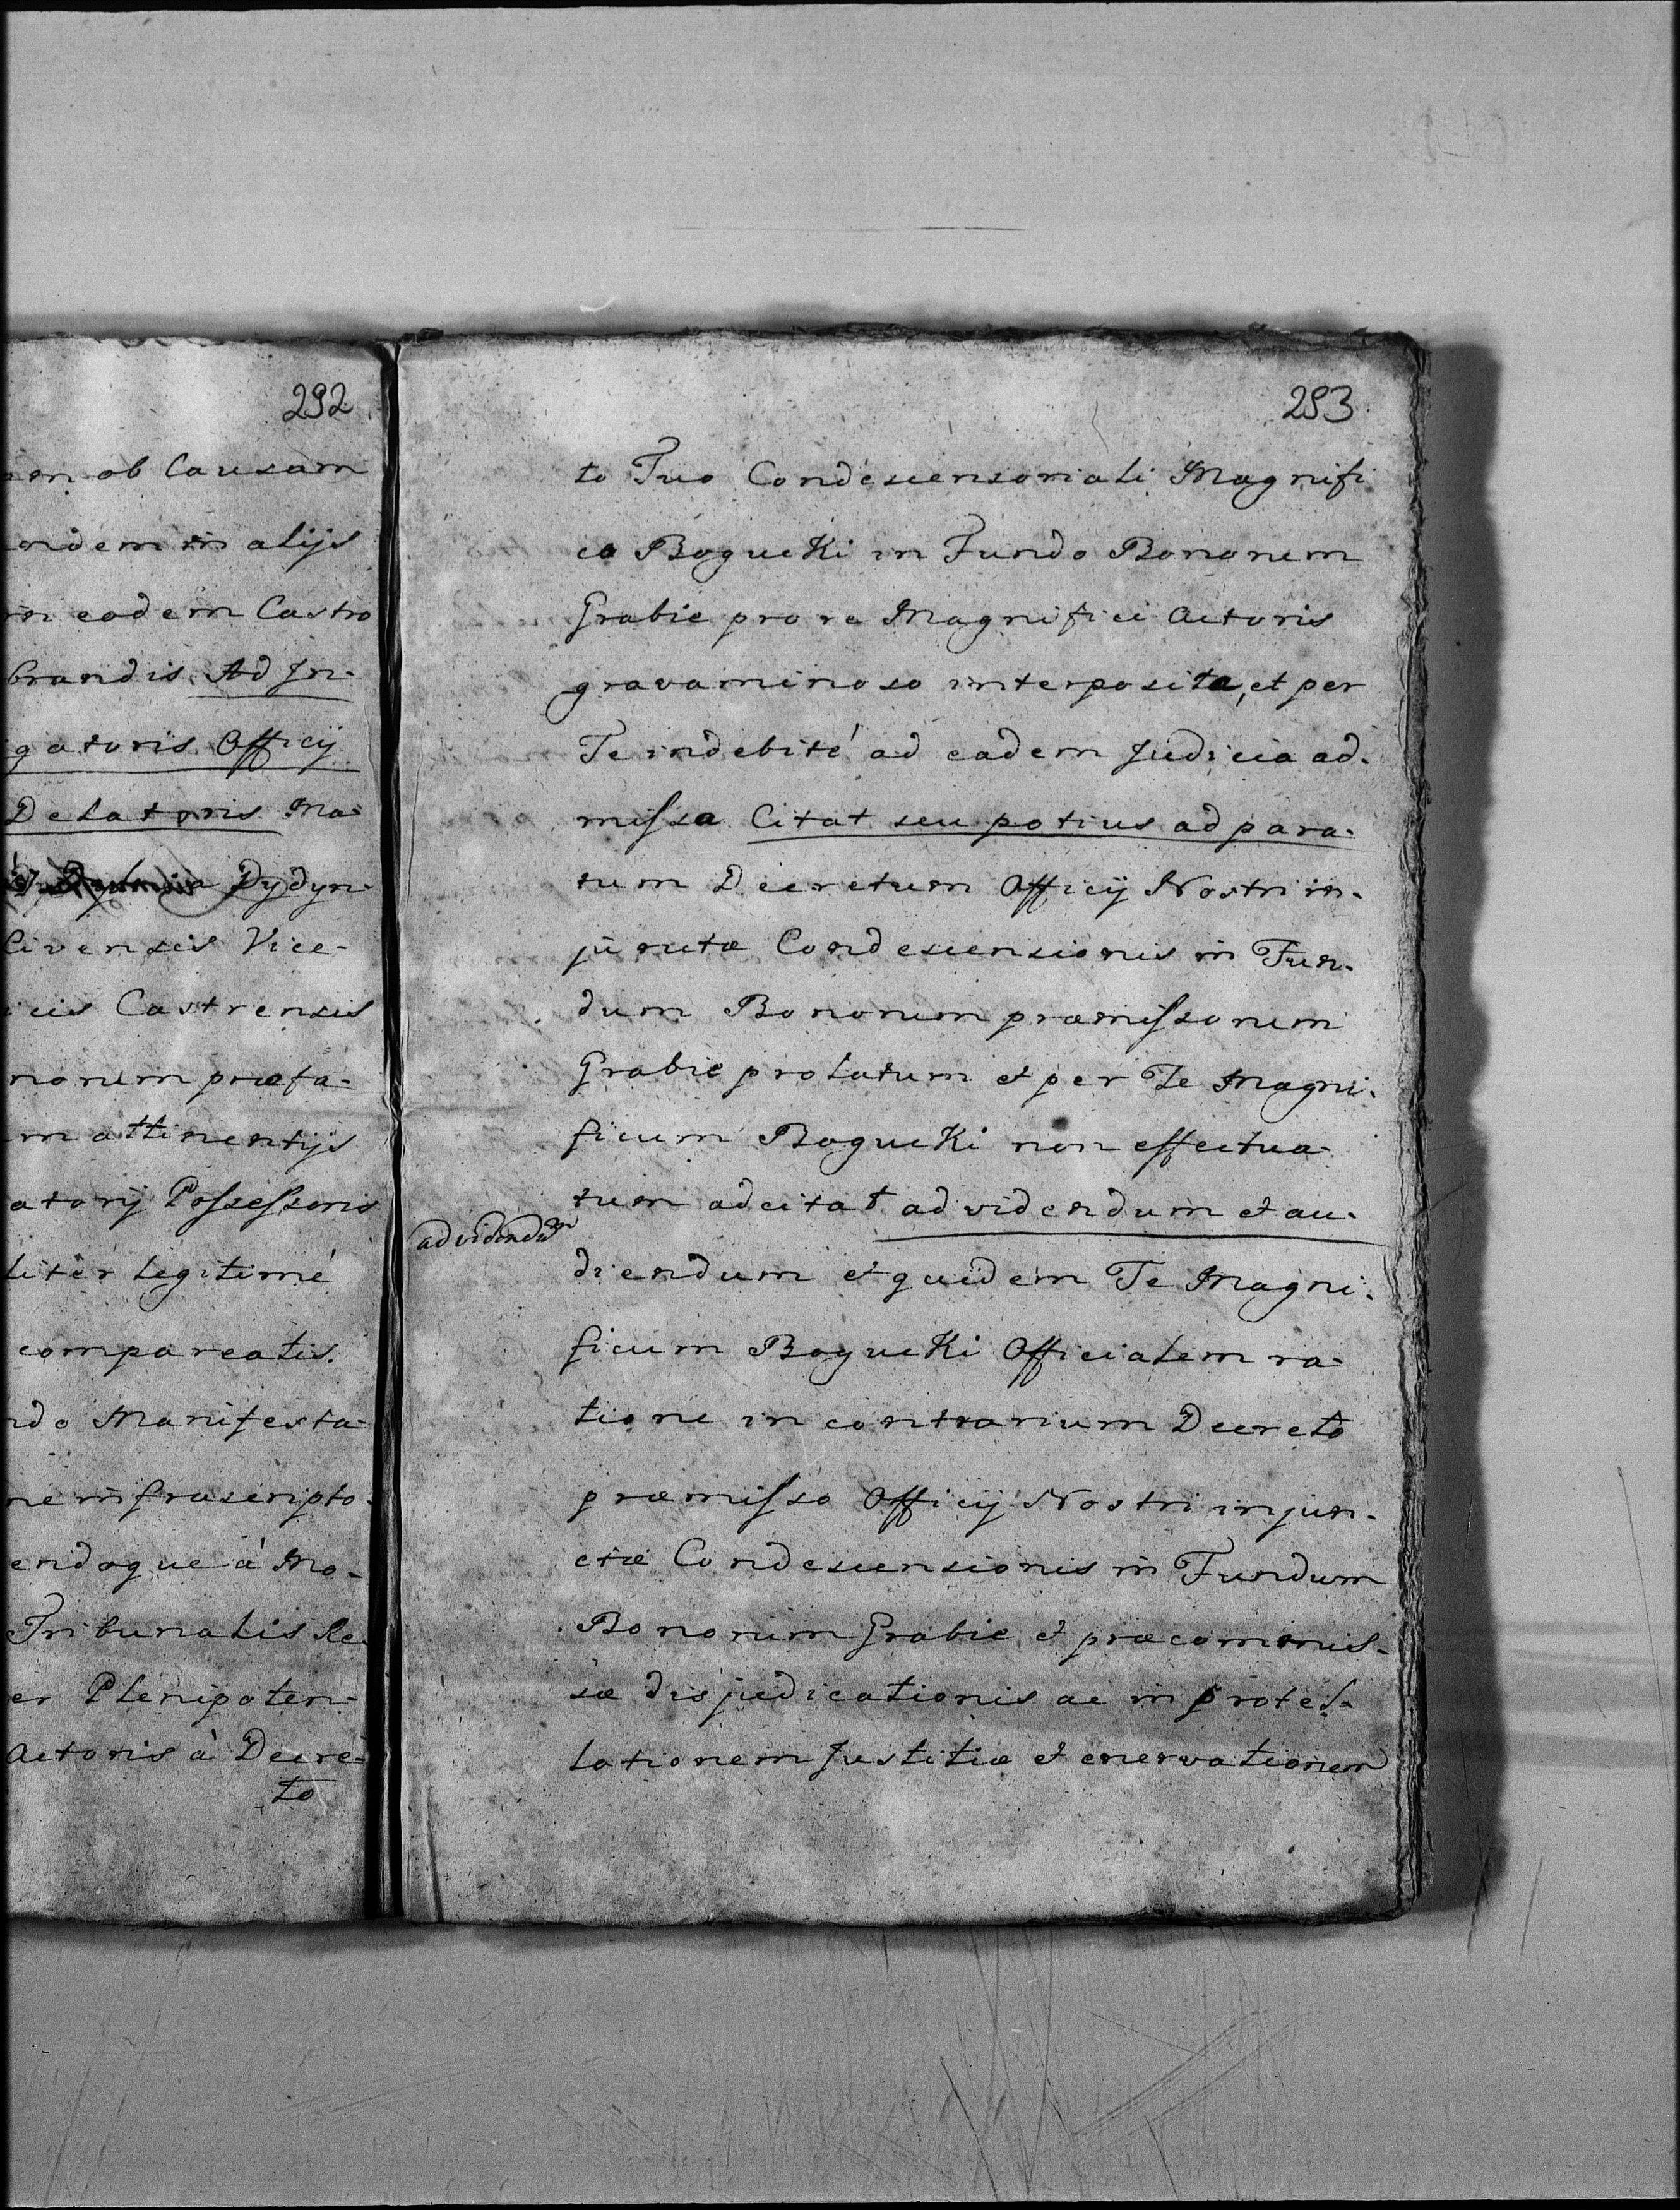 292
ob Causam
alijs
eodem Castro
brandis. Ad In-
gatoris Officij
Delatoris Ma-
Dydyn-
Civensis Vice-
Castrensis
norum præfa-
attinentijs
atorij Possessoris
liter legitimé
compareatis.
Manifesta-
infrascripto-
endoque á Mo-
Tribunalis Re-
er Plenipoten-
Actoris á Decre-
to
293
to Tuo Condescensoriali Magnifi
co Bogucki in Fundo Bonorum
Grabie pro re Magnifici Actoris
gravaminoso interposita, et per
Te indebité ad eadem Judicia ad-
missa Citat seu potius ad para-
tum Decretum Officij Nostri in-
junctæ Condescensionis in Fun-
dum Bonorum præmissorum
Grabie prolatum et per Te Magni-
ficum Bogucki non effectua-
tum adcitat ad videndum et au-
ad videndum
diendum et quidem Te Magni-
ficum Bogucki Officialem ra-
tione in contrarium Decreto
præmisso Officij Nostri injun-
ctæ Condescensionis in Fundum
Bonorum Grabie et præcommis-
sæ disjudicationis ac in protel-
lationem Justitiæ et enervationem